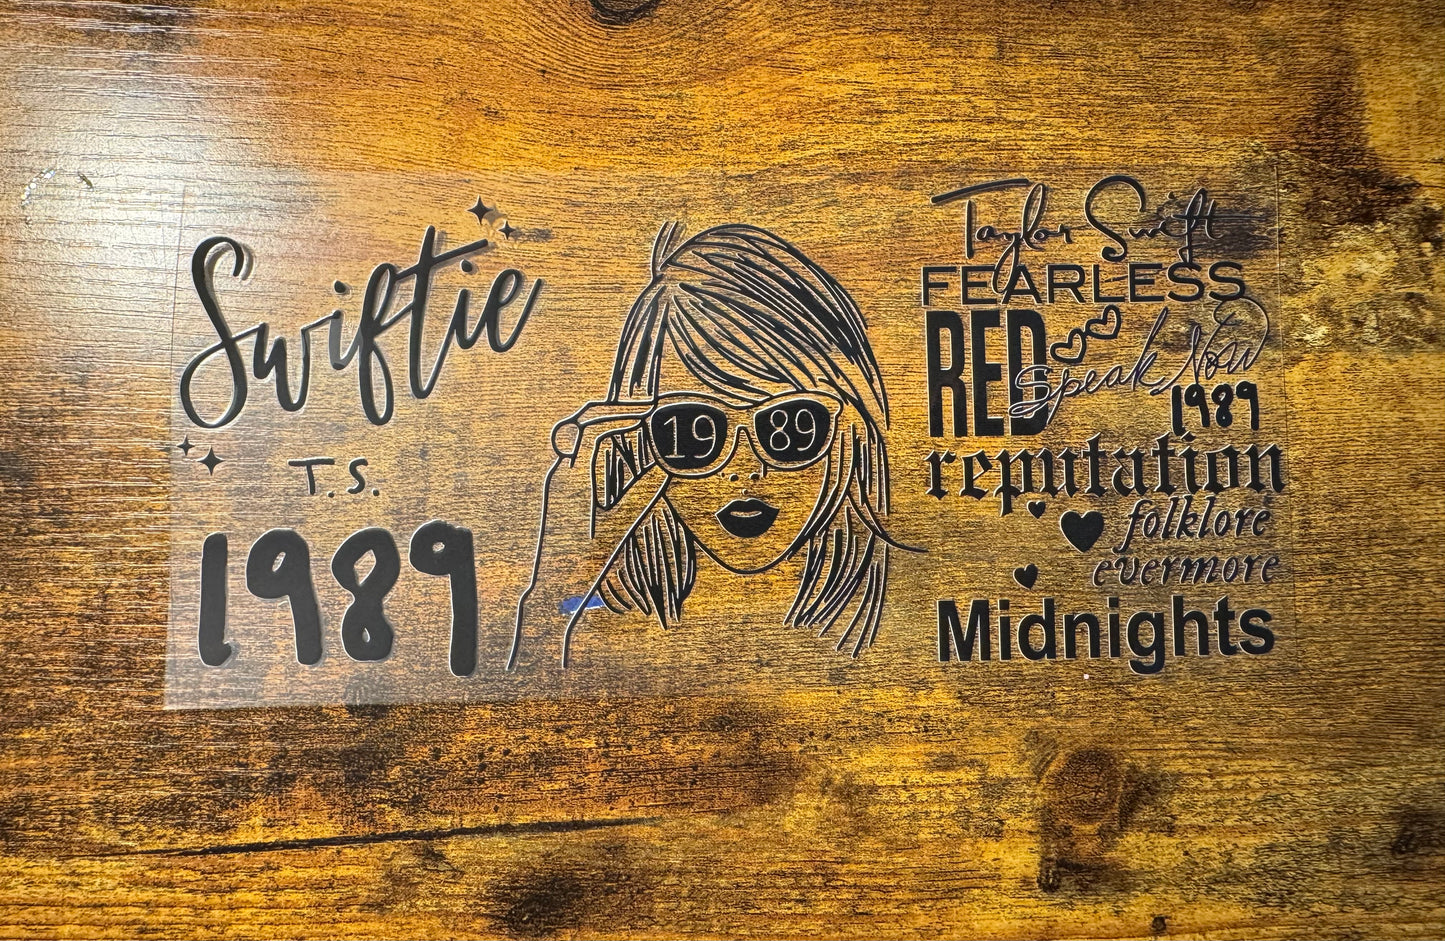 Swiftie
T.S.
1989
19 89
Taylor Swift
FEARLESS
RED
Speak Now
1989
reputation
folklore
evermore
Midnights